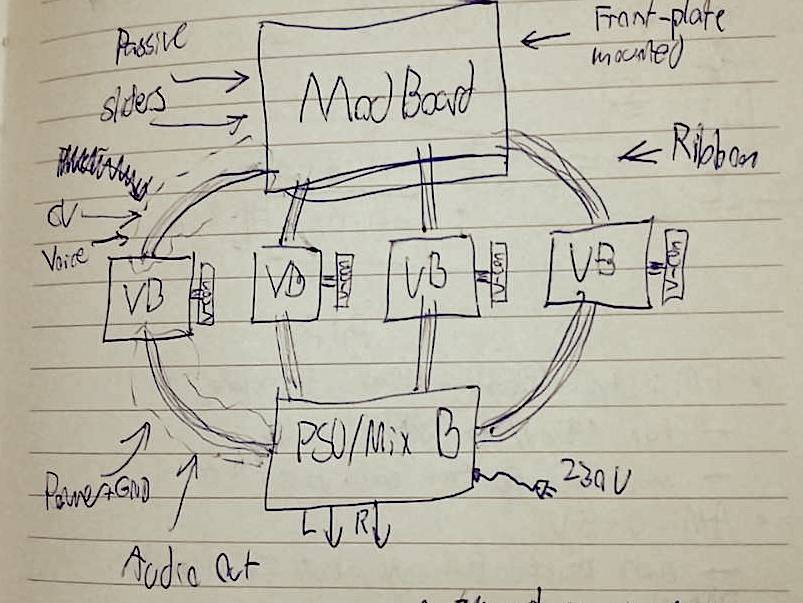 Passive
sliders
Front-plate
mounted
Mod Board
Ribbon
CV
Voice
VB
V-con
VB
V-con
VB
V-con
VB
V-con
PSU/Mix B
230V
Power+GND
L R
Audio out